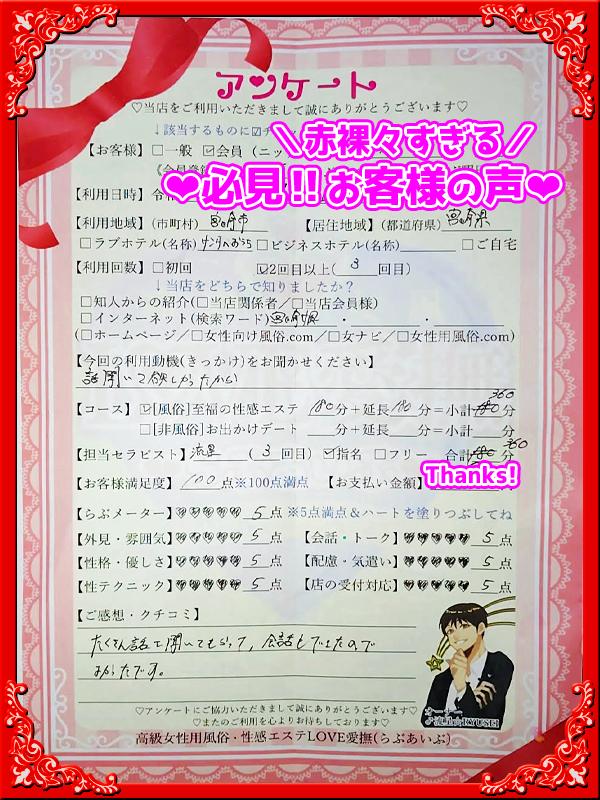 アンケート
♡当店をご利用いただきまして誠にありがとうございます♡
↓該当するものに☑チ
＼赤裸々すぎる／
【お客様】□一般 ☑会員（ニッ
❤必見!!お客様の声❤
【利用日時】
【利用地域】(市町村) 宮崎市 【居住地域】(都道府県) 宮崎県
□ラブホテル(名称) □ビジネスホテル(名称) □ご自宅
【利用回数】□初回 ☑2回目以上( 3 回目)
↓当店をどちらで知りましたか?
□知人からの紹介(□当店関係者／□当店会員様)
□インターネット(検索ワード) 宮崎県 ・ ・
(□ホームページ／□女性向け風俗.com／□女ナビ／□女性用風俗.com)
【今回の利用動機(きっかけ)をお聞かせください】
話聞いて欲しかったから
【コース】☑[風俗]至福の性感エステ 180分＋延長180分＝小計 360分
□[非風俗]お出かけデート 分＋延長 分＝小計 分
【担当セラピスト】流星 ( 3 回目) ☑指名 □フリー 合計 360分
【お客様満足度】 100 点※100点満点 【お支払い金額】 Thanks!
【らぶメーター】♥♥♥♥♥ 5 点 ※5点満点＆ハートを塗りつぶしてね
【外見・雰囲気】♥♥♥♥♥ 5 点 【会話・トーク】♥♥♥♥♥ 5 点
【性格・優しさ】♥♥♥♥♥ 5 点 【配慮・気遣い】♥♥♥♥♥ 5 点
【性テクニック】♥♥♥♥♥ 5 点 【店の受付対応】♥♥♥♥♥ 5 点
【ご感想・クチコミ】
たくさん話を聞いてもらって、会話もできたので
よかったです。
オーナー
流星☆RYUSEI
♡アンケートにご協力いただきまして誠にありがとうございます♡
♡またのご利用を心よりお待ちしております♡
高級女性用風俗・性感エステLOVE愛撫(らぶあいぶ)